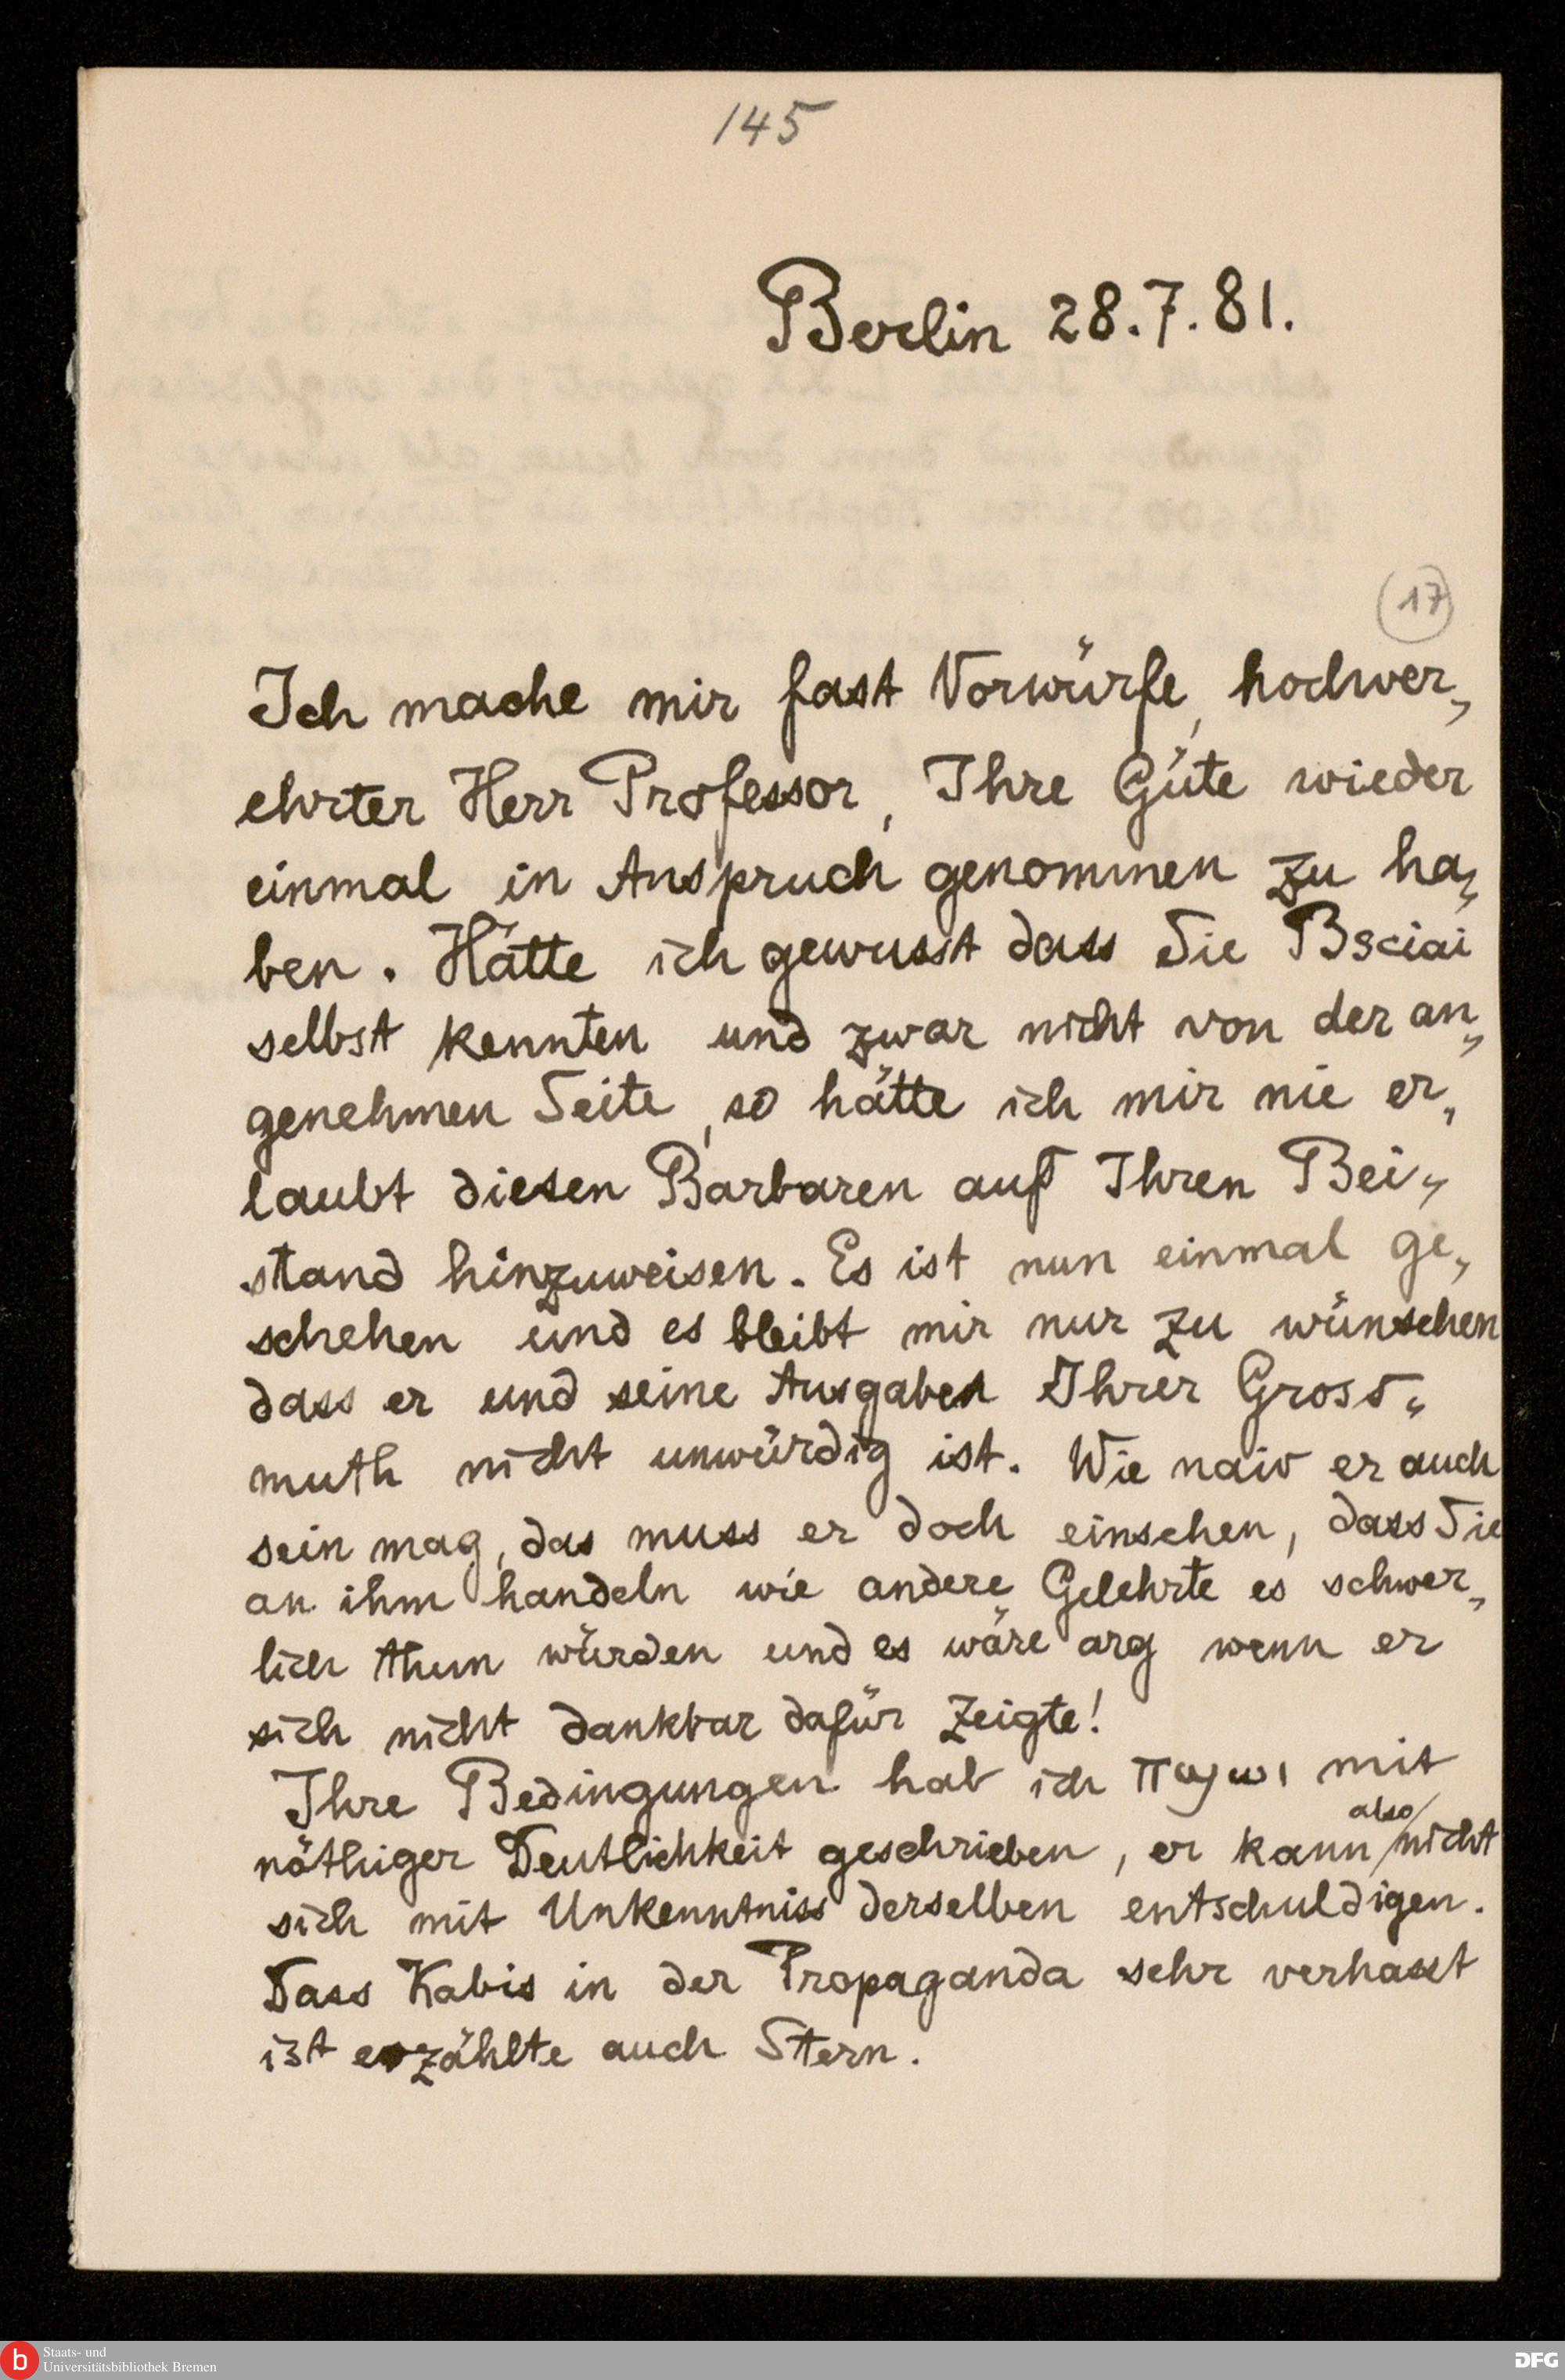 145
Berlin 28.7.81.
17
Ich mache mir fast Vorwürfe, hochver„
ehrter Herr Professor, Ihre Güte wieder
einmal in Anspruch genommen zu ha„
ben. Hätte ich gewusst dass Sie Bsciai
selbst kennten und zwar nicht von der an„
genehmen Seite, so hätte ich mir nie er„
laubt diesen Barbaren auf Ihren Bei„
stand hinzuweisen. Es ist nun einmal ge„
schehen und es bleibt mir nur zu wünschen
dass er und seine Ausgaben Ihrer Gross„
muth nicht unwürdig ist. Wie naiv er auch
sein mag, das muss er doch einsehen, dass Sie
an ihm handeln wie andere Gelehrte es schwer„
lich thun würden und es wäre arg wenn er
sich nicht dankbar dafür zeigte!
Ihre Bedingungen hab ich ⲡϣⲱⲓ mit
nöthiger Deutlichkeit geschrieben, er kann also nicht
sich mit Unkenntniss derselben entschuldigen.
Dass Kabis in der Propaganda sehr verhasst
ist erzählte auch Stern.
b
Staats- und
Universitätsbibliothek Bremen
DFG